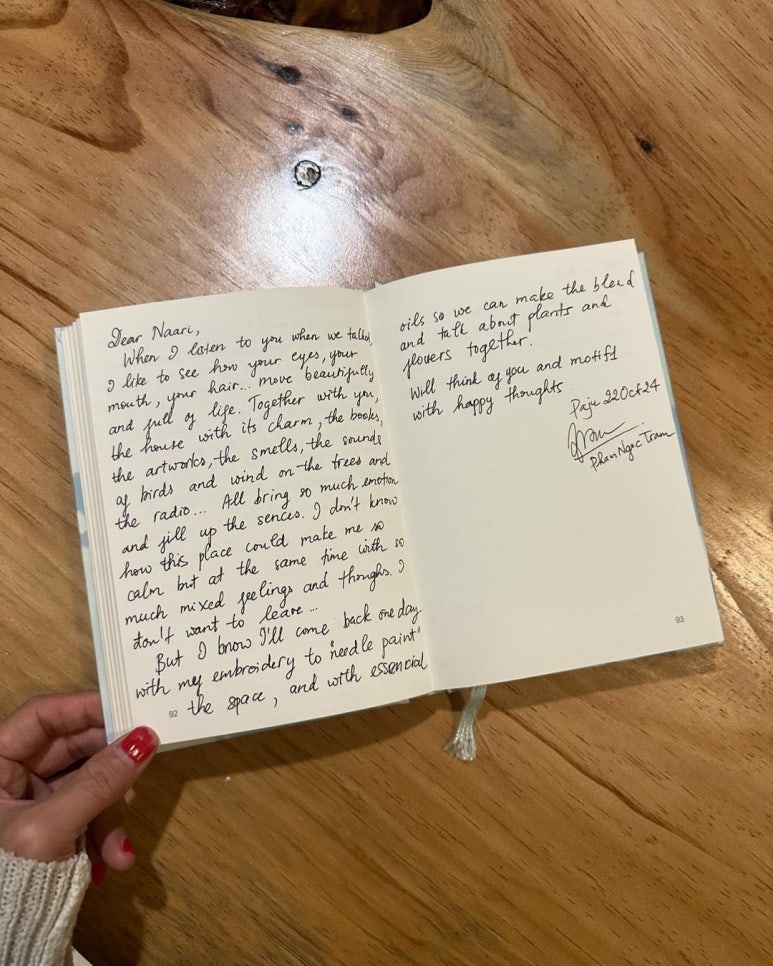 Dear Naari,
When I listen to you when we talked,
I like to see how your eyes, your
mouth, your hair... move beautifully
and full of life. Together with you,
the house with its charm, the books,
the artworks, the smells, the sounds
of birds and wind on the trees and
the radio... All bring so much emotion
and fill up the sences. I don't know
how this place could make me so
calm but at the same time with so
much mixed feelings and thoughs. I
don't want to leave...
But I know I'll come back one day
with my embroidery to "needle paint"
the space, and with essencial
92
oils so we can make the blend
and talk about plants and
flovers together.
Will think of you and motif1
with happy thoughts.
Paju 22 Oct 24
Phan Ngoc Tram
93